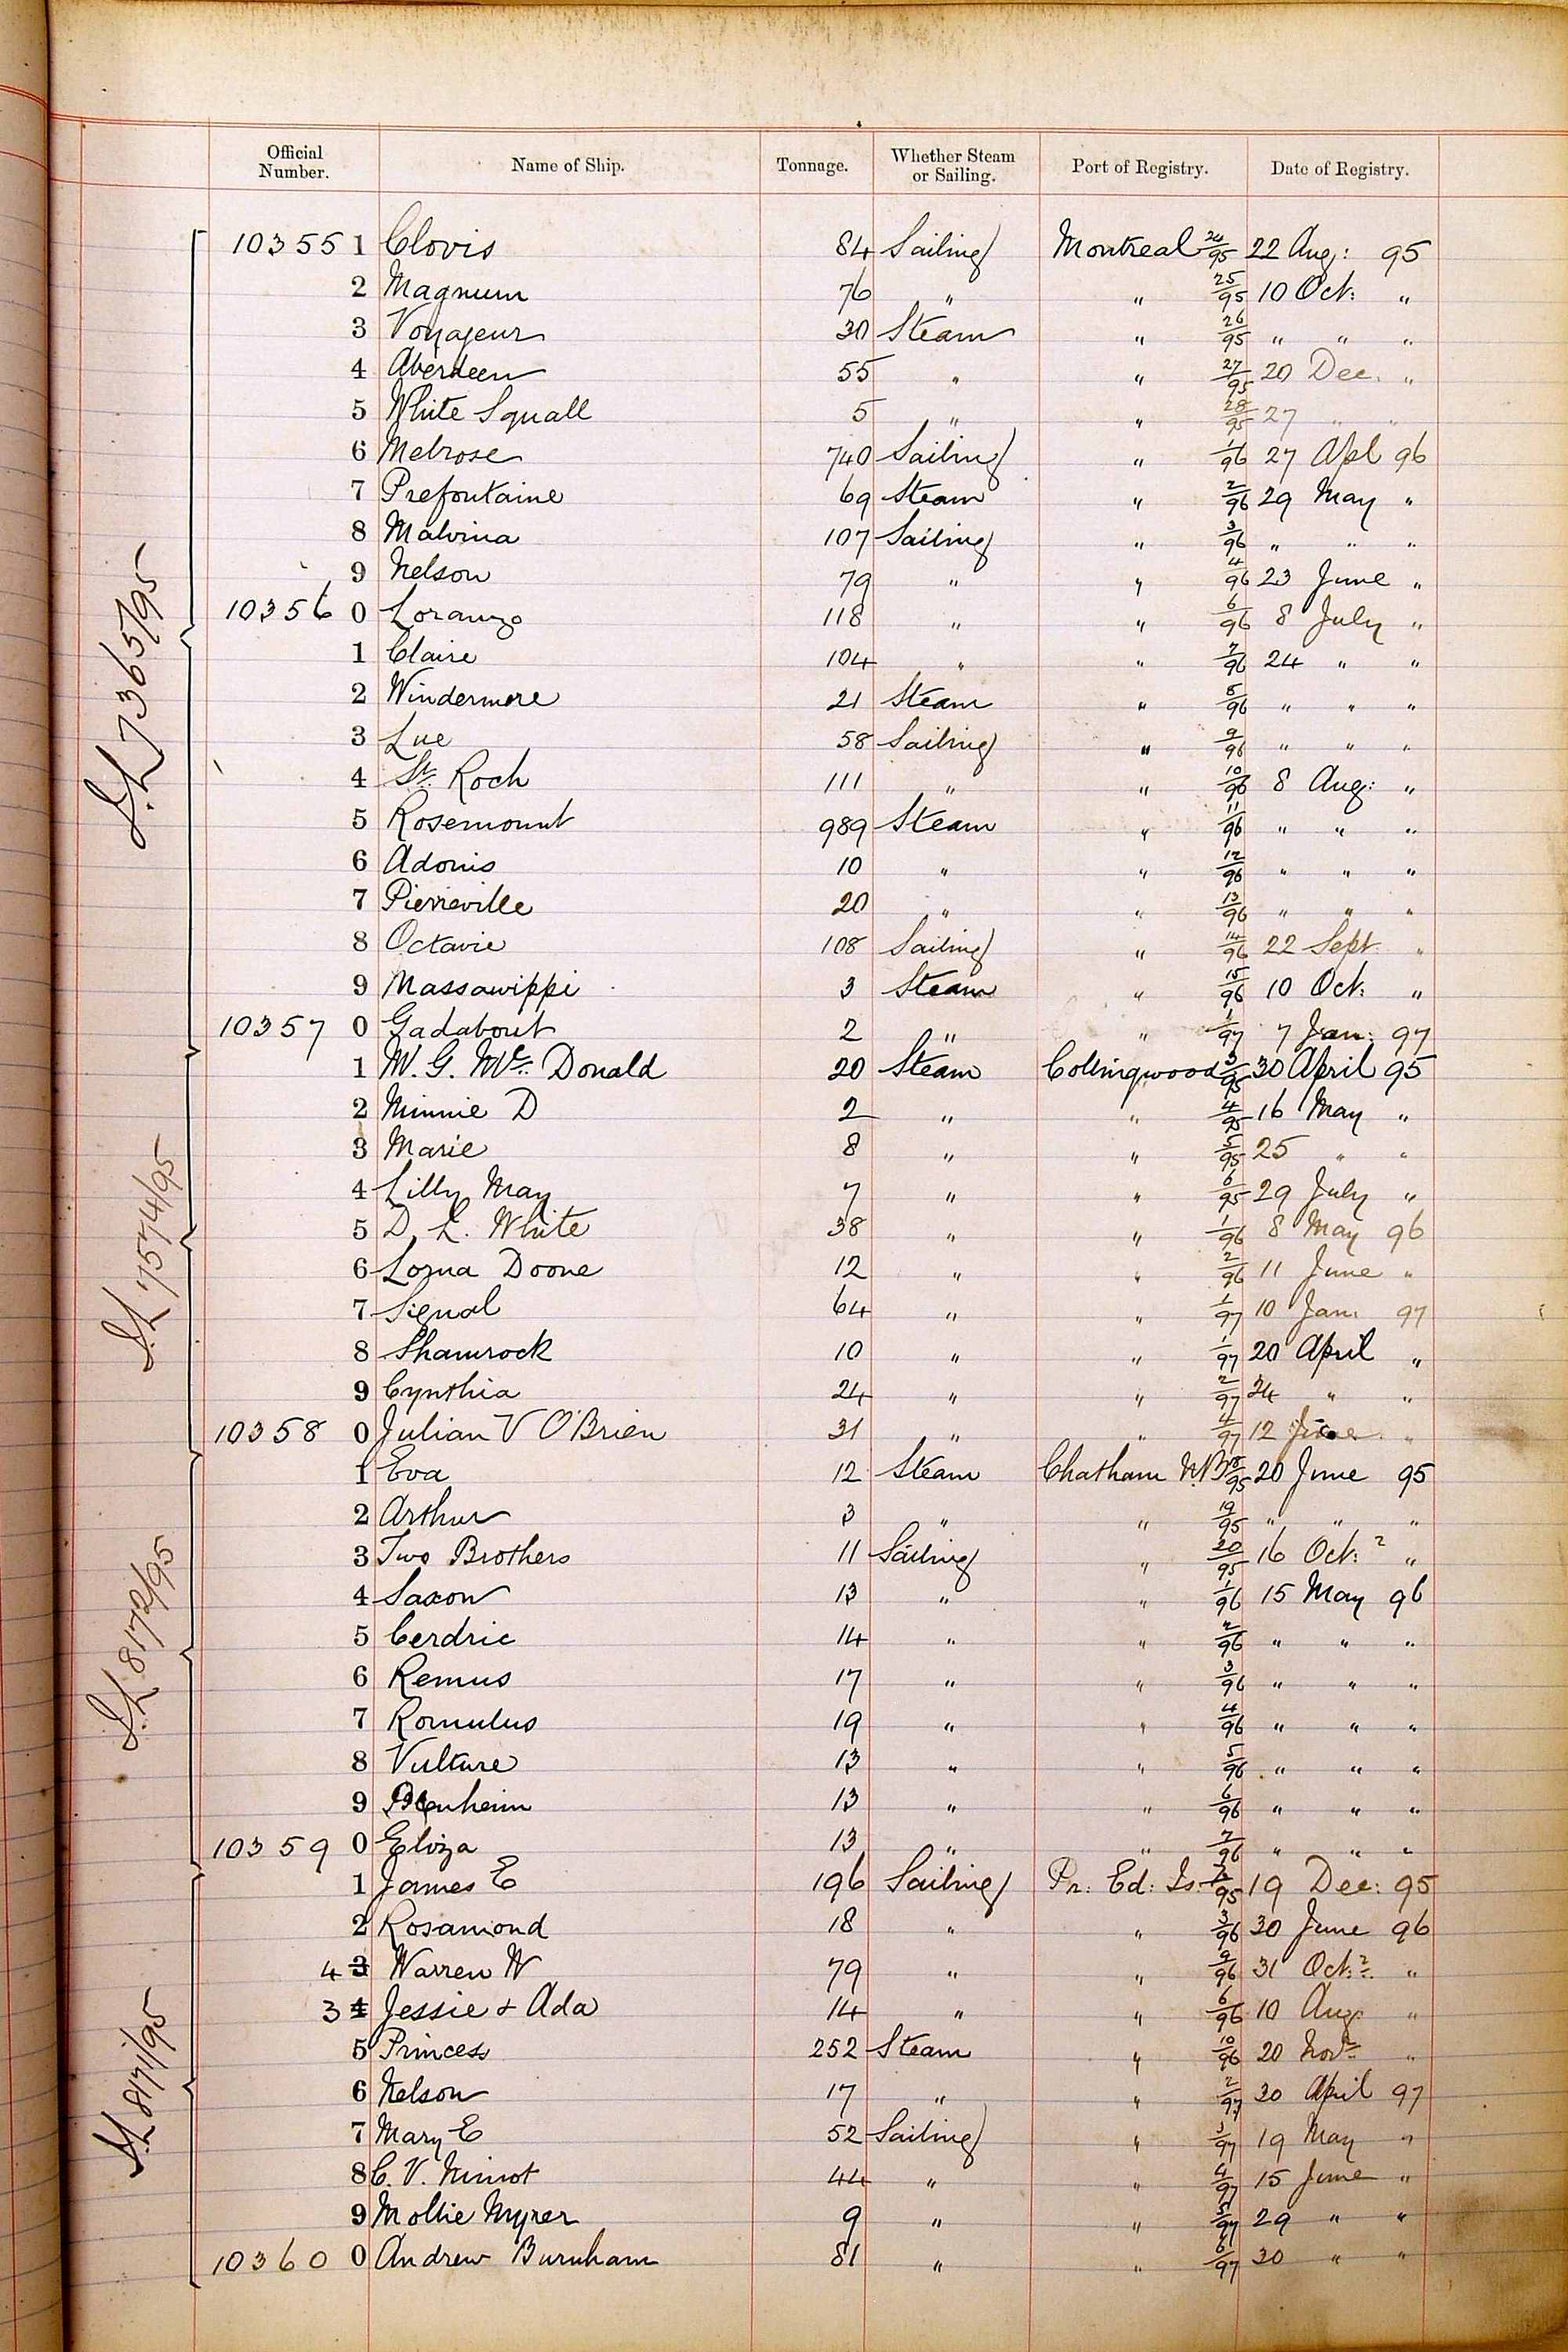 Official Number. Name of Ship. Tonnage. Whether Steam or Sailing. Port of Registry. Date of Registry.
S.L 7365/95
10355 1 Clovis 84 Sailing Montreal 24/95 22 Aug: 95
2 Magnum 76 " " 25/95 10 Oct: "
3 Voyageur 30 Steam " 26/95 " " "
4 Aberdeen 55 " " 27/95 20 Dec. "
5 White Squall 5 " " 28/95 27 " "
6 Melrose 740 Sailing " 1/96 27 Apl 96
7 Prefontaine 69 Steam " 2/96 29 May "
8 Malvina 107 Sailing " 3/96 " " "
9 Nelson 79 " " 4/96 23 June "
10356 0 Loranzo 118 " " 6/96 8 July "
1 Claire 104 " " 7/96 24 " "
2 Windermere 21 Steam " 8/96 " " "
3 Lue 58 Sailing " 9/96 " " "
4 St. Roch 111 " " 10/96 8 Aug: "
5 Rosemount 989 Steam " 11/96 " " "
6 Adonis 10 " " 12/96 " " "
7 Pierreville 20 " " 13/96 " " "
8 Octavie 108 Sailing " 14/96 22 Sept. "
9 Massawippi 3 Steam " 15/96 10 Oct: "
10357 0 Gadabout 2 " " 1/97 7 Jan: 97
S.L 7574/95
1 M. G. Mc. Donald 20 Steam Collingwood 3/95 30 April 95
2 Minnie D 2 " " 4/95 16 May "
3 Marie 8 " " 5/95 25 " "
4 Lilly May 7 " " 6/95 29 July "
5 D. L. White 38 " " 1/96 8 May 96
6 Lorna Doone 12 " " 2/96 11 June "
7 Signal 64 " " 1/97 10 Jan: 97
8 Shamrock 10 " " 1/97 20 April "
9 Cynthia 24 " " 2/97 24 " "
10358 0 Julian V O'Brien 31 " " 4/97 12 June "
S.L 8172/95
1 Eva 12 Steam Chatham N.B 18/95 20 June 95
2 Arthur 3 " " 19/95 " " "
3 Two Brothers 11 Sailing " 20/95 16 Oct: r "
4 Saxon 13 " " 1/96 15 May 96
5 Cerdric 14 " " 2/96 " " "
6 Remus 17 " " 3/96 " " "
7 Romulus 19 " " 4/96 " " "
8 Vulture 13 " " 5/96 " " "
9 Blenheim 13 " " 6/96 " " "
10359 0 Eliza 13 " " 7/96 " " "
S.L 8171/95
1 James E 196 Sailing Pr: Ed: Is. /95 19 Dec: 95
2 Rosamond 18 " " 3/96 30 June 96
4 3 Warren W 79 " " 9/96 31 Oct:r. "
3 4 Jessie & Ada 14 " " 6/96 10 Aug: "
5 Princess 252 Steam " 10/96 20 Novr. "
6 Nelson 17 " " 2/97 30 April 97
7 Mary E 52 Sailing " 3/97 19 May "
8 C. V. Minot 44 " " 4/97 15 June "
9 Mollie Myrer 9 " " 5/97 29 " "
10360 0 Andrew Burnham 81 " " 6/97 30 " "